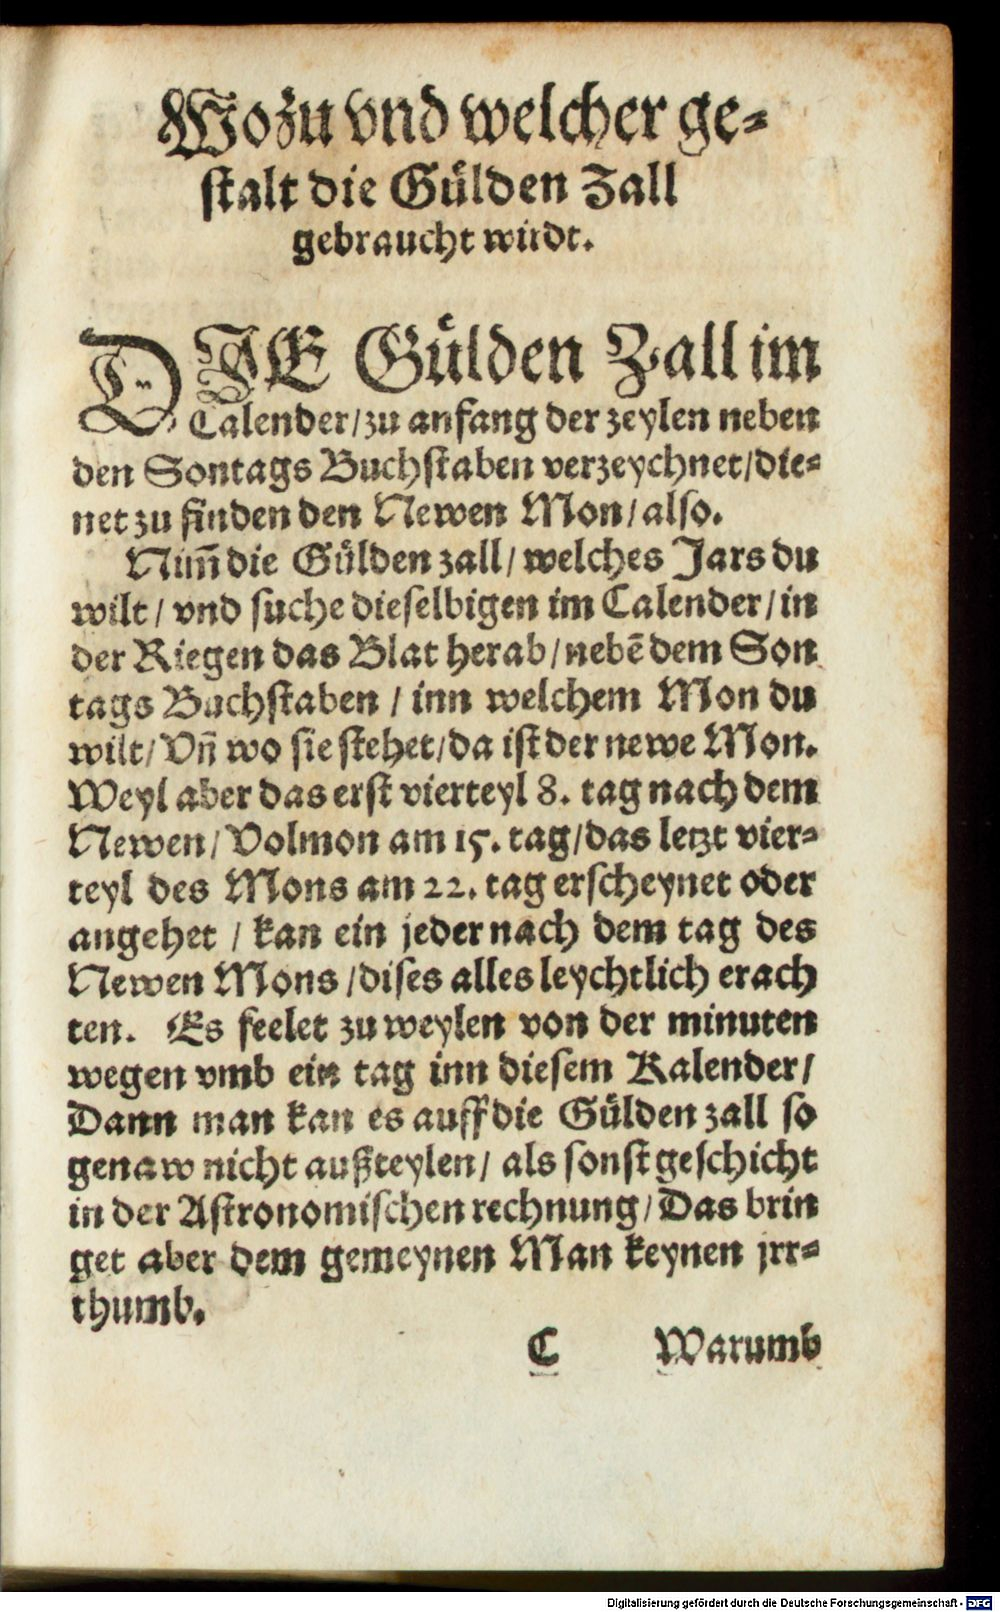 Wozu vnd welcher ge⸗
stalt die Gülden Zall
gebraucht wirdt.
DIE Gülden Zall im
Calender/zu anfang der zeylen neben
den Sontags Buchstaben verzeychnet/die⸗
net zu finden den Newen Mon/also.
Nim̃ die Gülden zall/welches Jars du
wilt/vnd suche dieselbigen im Calender/in
der Riegen das Blat herab/nebẽ dem Son
tags Buchstaben/inn welchem Mon du
wilt/Vñ wo sie stehet/da ist der newe Mon.
Weyl aber das erst vierteyl 8. tag nach dem
Newen/Volmon am 15. tag/das letzt vier⸗
teyl des Mons am 22. tag erscheynet oder
angehet/kan ein jeder nach dem tag des
Newen Mons/dises alles leychtlich erach
ten. Es feelet zu weylen von der minuten
wegen vmb ein tag inn diesem Kalender/
Dann man kan es auff die Gülden zall so
genaw nicht außteylen/als sonst geschicht
in der Astronomischen rechnung/Das brin
get aber dem gemeynen Man keynen jrr⸗
thumb.
C Warumb
Digitalisierung gefördert durch die Deutsche Forschungsgemeinschaft - DFG